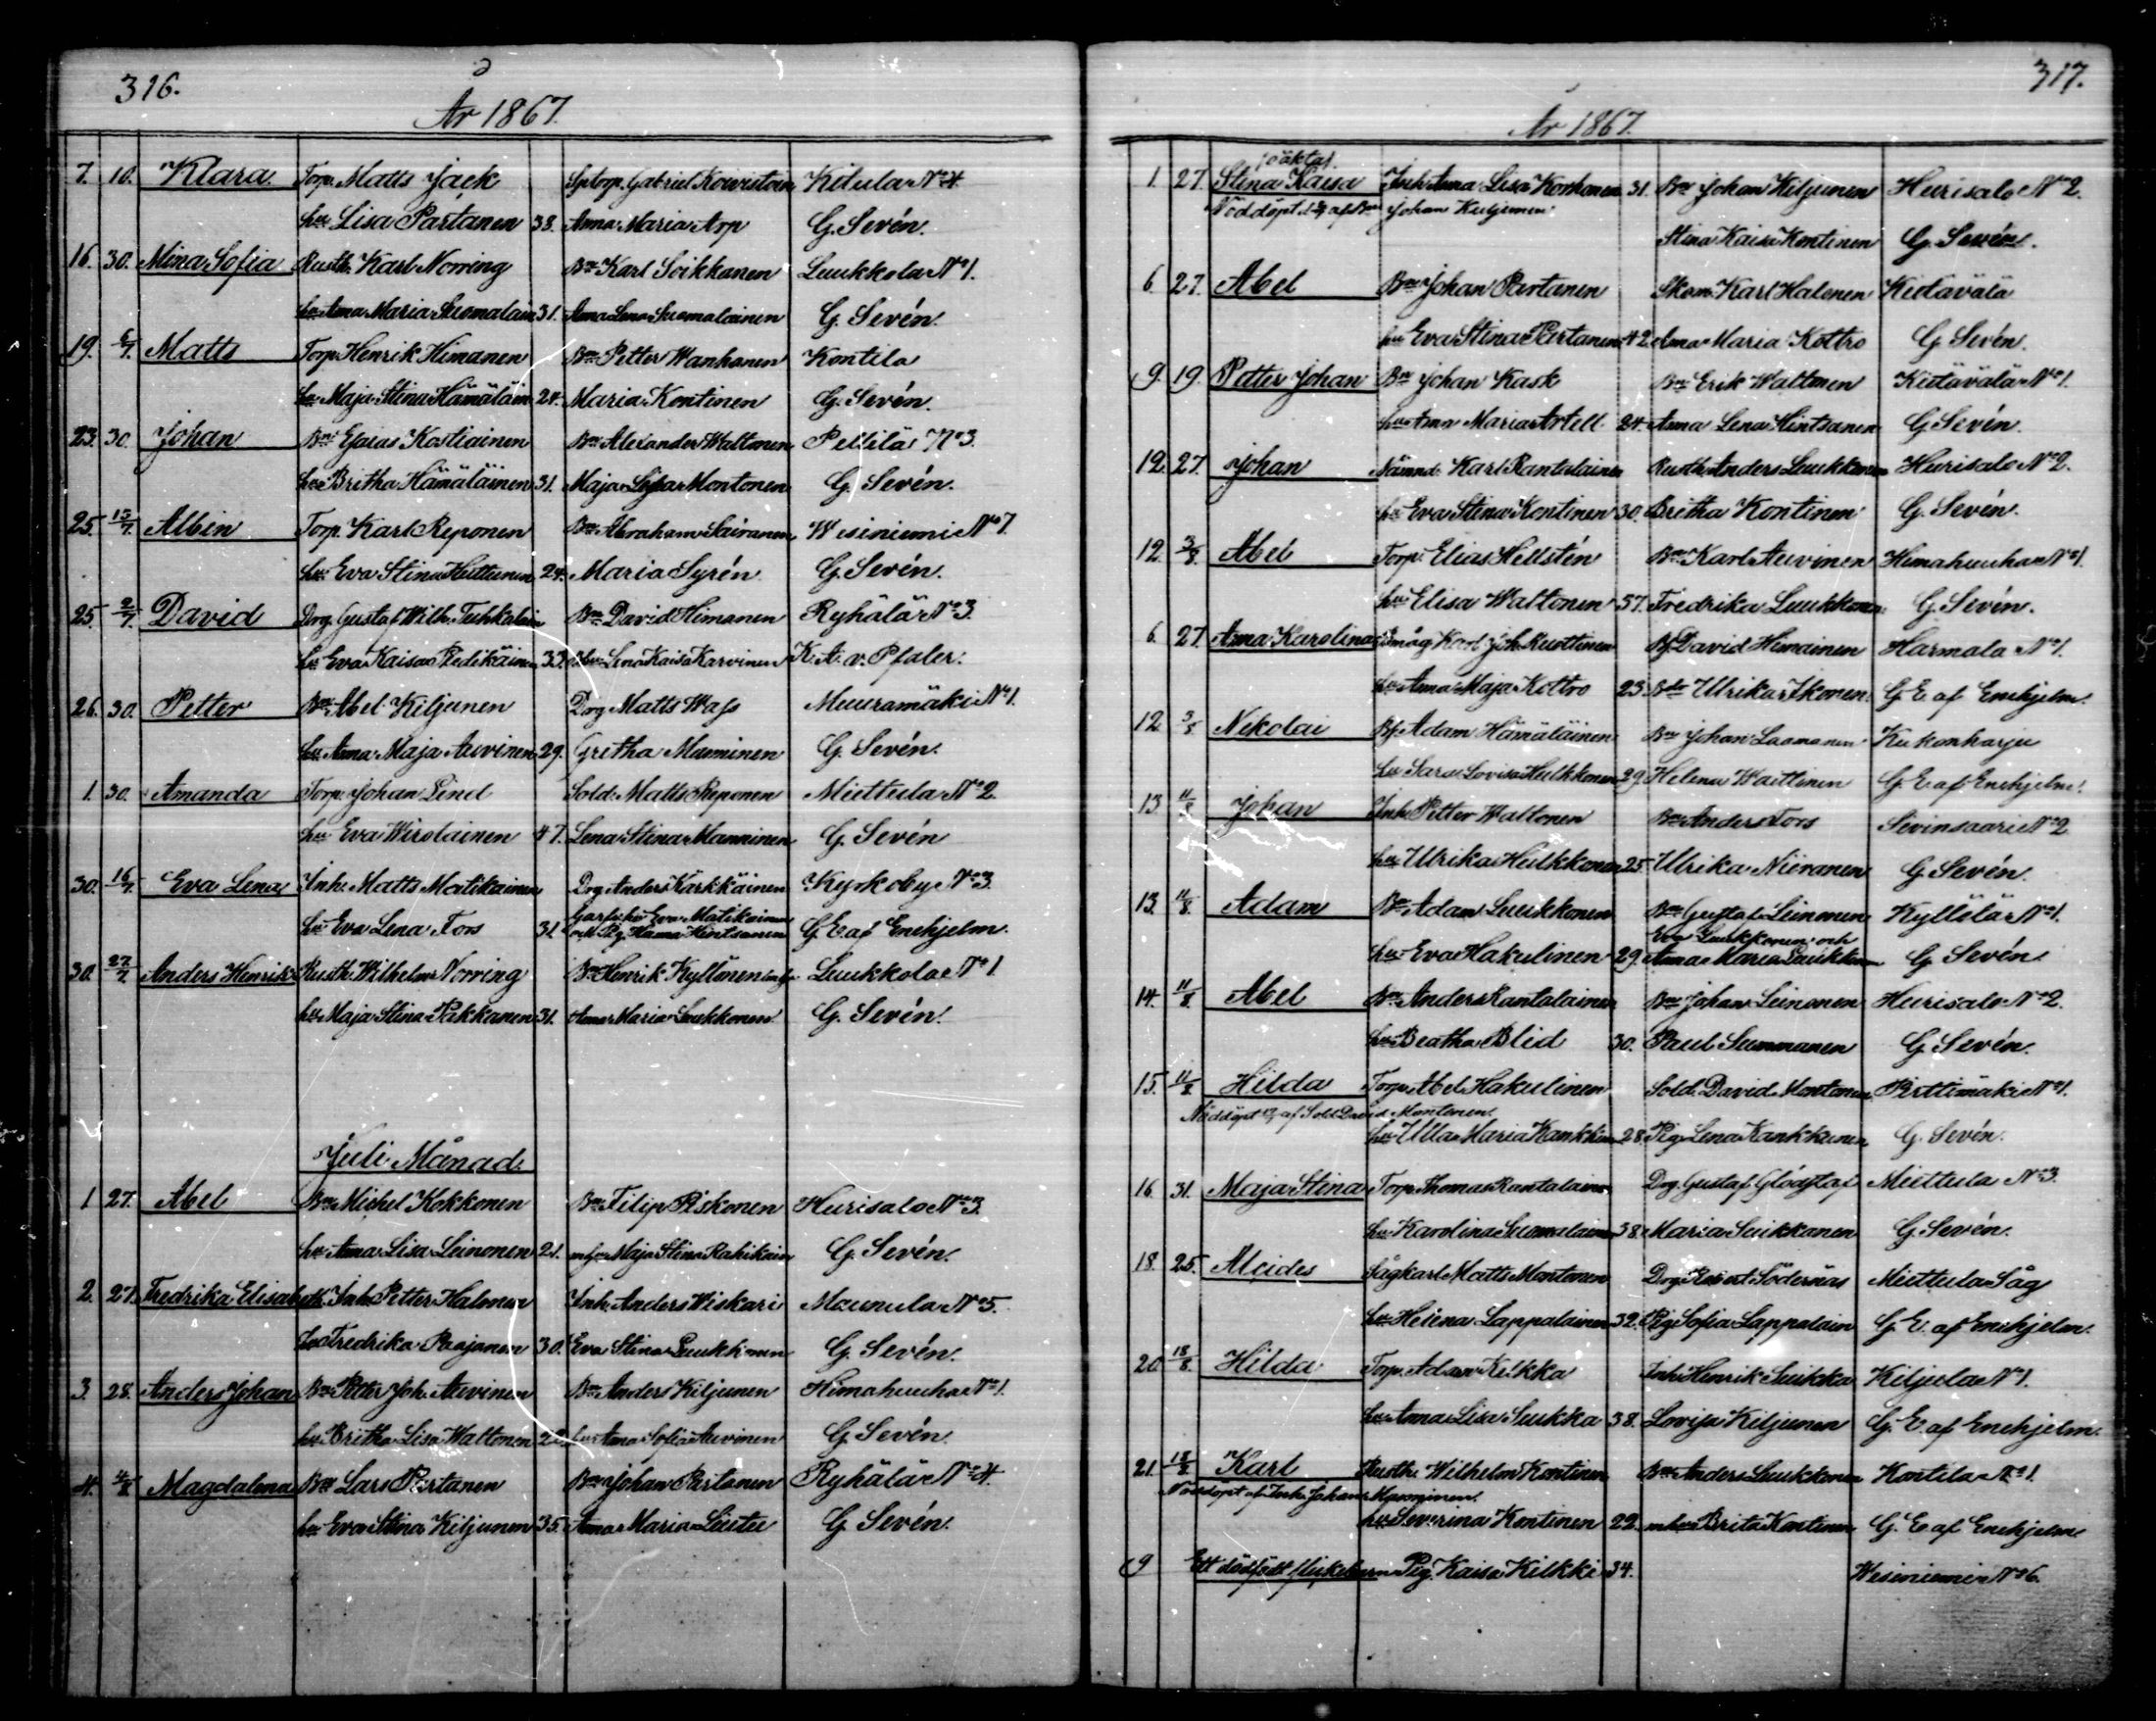 316.
År 1867.
7. 10. Klara. Torp. Matts Jack Sptorp. Gabriel Koivistoin Kitula No 4.
hu Lisa Partanen 38. Anna Maria Arp G. Sevén.
16. 30. Mina Sofia Rusth. Karl Norring Bm Karl Soikkanen Luukkola No 1.
hu Anna Maria Suomalain 31. Anna Lena Suomalainen G. Sevén.
19. 6/7. Matts Torp. Henrik Himanen Bm Petter Wanhanen Kontila
hu Maja Stina Hämäläin 24. Maria Kontinen G. Sevén.
23. 30. Johan Bm Esaias Kostiainen Bm Alexander Waltonen Pellilä No 3.
hu Britha Hämäläinen 31. Maja Lisa Montonen G. Sevén.
25. 15/7. Albin Torp. Karl Reponen Bm Abraham Sairanen Wesiniemi No 7.
hu Eva Stina Huttunen 24. Maria Syrén G. Sevén.
25. 2/7. David Drg. Gustaf Wilh. Tuhkalain Bm David Himanen Ryhälä No 3.
hu Eva Kaisa Pedikäinen 33. Lena Kaisa Karvinen K. A. v. Pfaler.
26. 30. Petter Bm Abel Kiljunen Drg Matts Wass Muuramäki No 1.
hu Anna Maja Auvinen 29. Gretha Manninen G. Sevén.
1. 30. Amanda Torp. Johan Lind Sold. Matts Reponen Miettula No 2.
hu Eva Wirolainen 47. Lena Stina Manninen G. Sevén
30. 16/7. Eva Lena Inh. Matts Matikainen Drg Anders Kärkkäinen Kyrkoby No 3.
hu Eva Lena Fors 31. Eva Matikainen G. E af Enehjelm.
och Pig. Hintsanen
30. 27/7. Anders Henrik Rusth. Wilhelm Norring Bm Henrik Kyllönen Luukkola No 1
hu Maja Stina Pakkanen 31. Anna Maria Luukkonen G. Sevén.
Juli Månad.
1 27. Abel Bm Michel Kokkonen Bm Filip Piskonen Hurisalo No 3.
hu Anna Lisa Leinonen 21. Maja Stina Rahikain G. Sevén.
2. 27. Fredrika Elisabeth. Inh. Petter Halonen Inh. Anders Wiskari Maunula No 5.
hu Fredrika Paajanen 30. Eva Stina Luukkonen G. Sevén.
3. 28. Anders Johan Bm Petter Joh. Auvinen Bm Anders Kiljunen Himahuuha No 1.
hu Britha Lisa Waltonen Anna Sofia Auvinen G. Sevén.
4. 4/8. Magdalena Bm Lars Partanen Bm Johan Partanen Ryhälä No 4.
hu Eva Stina Kiljunen 35. Anna Maria Liutu G. Sevén.
317.
År 1867.
(oäkta).
1. 27. Stina Kaisa Inh. Anna Lisa Korhonen 31. Bm Johan Kiljunen Hurisalo No 2.
Nöddöpt af Bm Johan Kiljunen.
Stina Kaisa Kontinen G. Sevén.
6. 27. Abel Bm Johan Partanen Skom. Karl Halonen Kietävälä
hu Eva Stina Partanen 42. Anna Maria Kottro G. Sevén.
9. 19. Petter Johan Bm Johan Kask Bm Erik Waltonen Kietävälä No 1.
hu Anna Maria Artell 24. Anna Lena Hintsanen G. Sevén.
12. 27. Johan Nämnd. Karl Rantalainen Rusth. Anders Luukkonen Hurisalo No 2.
hu Eva Stina Kontinen 30. Britha Kontinen G. Sevén.
12 3/8. Abel Torp. Elias Hellstén Bm Karl Auvinen Himahuuha No 1.
hu Elisa Waltonen 37. Fredrika Luukkonen G. Sevén.
6. 27. Anna Karolina Karl Joh. Ruottinen Bs. David Himainen Harmala No 1.
hu Anna Maja Kottro 23. Ulrika Ikonen. G. E. af Enehjelm.
12 3/8 Nikolai Bs. Adam Hämäläinen Bm Johan Laamanen Kukonharju
hu Sara Lovisa Hulkkonen 29. Helena Waittinen G. E. af Enehjelm.
13 11/8 Johan Inh. Petter Waltonen Bm Anders Fors Sivinsaari No 2
hu Ulrika Hulkkonen 25. Ulrika Niiranen G. Sevén.
13. 11/8. Adam Bm Adam Luukkonen Bm Gustaf Leinonen Kyllölä No 1.
Eva Luukkonen och
hu Eva Hakulinen 29. Anna Maria Luukkonen G. Sevén
14. 11/8 Abel Bm Anders Rantalainen Bm Johan Leinonen Hurisalo No 2.
hu Beatha Blid 30. Paul Summanen G. Sevén.
15. 11/8 Hilda Torp. Abel Hakulinen Sold. David Montonen Pirttimäki No 1.
Nöddöpt af Sold. David Montonen.
hu Ulla Maria Kankkun 28. Pig. Lena Kankkunen G. Sevén.
16. 31. Maja Stina Torp. Thomas Rantalainen Drg. Gustaf Glödstaf Miettula No 3.
hu Karolina Suomalainen 38. Maria Suikkanen G. Sevén.
18. 25. Alcides Sågkarl Matts Montonen Drg Robert Södernäs Miettula Såg
hu Helena Lappalainen 32. Pig Sofia Lappalain G. E. af Enehjelm.
20. 18/8. Hilda Torp. Adam Kilkka Inh. Henrik Suikka Kiljula No 1.
hu Anna Lisa Suikka 38. Lovisa Kiljunen G. E. af Enehjelm.
21. 18/8. Karl Rusth. Wilhelm Kontinen Bm Anders Luukkonen Kontila No 1.
Nöddöpt af Inh. Johan Manninen.
hu Severina Kontinen 22. Brita Kontinen G. E. af Enehjelm
9 Ett dödfödt flickebarn Pig. Kaisa Kilkki 34. Wesiniemi No 6.